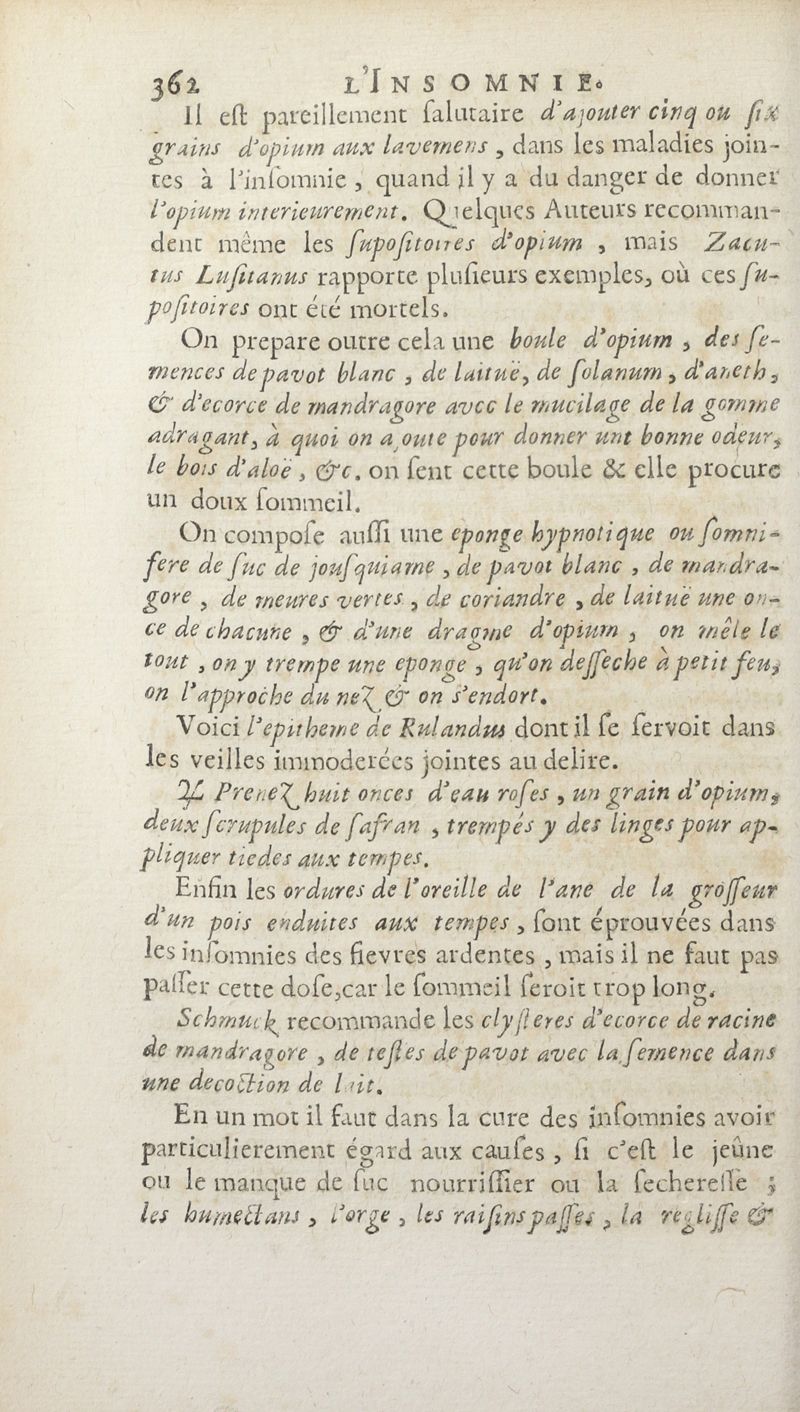 362 L'INSOMNIE.
Il eſt pareillement ſalutaire d'ajouter cinq ou ſix
grains d'opium aux lavemens, dans les maladies join-
tes à l'inſomnie, quand il y a du danger de donner
l'opium interieurement. Quelques Auteurs recomman-
dent même les ſupoſitoires d'opium, mais Zacu-
tus Luſitanus rapporte pluſieurs exemples, où ces ſu-
poſitoires ont été mortels.
On prepare outre cela une boule d'opium, des ſe-
mences de pavot blanc, de laituë, de ſolanum, d'aneth,
& d'ecorce de mandragore avec le mucilage de la gomme
adragant, à quoi on ajoute pour donner une bonne odeur,
le bois d'aloë, &c. on ſent cette boule & elle procure
un doux ſommeil.
On compoſe auſſi une eponge hypnotique ou ſomni-
fere de ſuc de jouſquiame, de pavot blanc, de mandra-
gore, de meures vertes, de coriandre, de laituë une on-
ce de chacune, & d'une dragme d'opium, on mêle le
tout, on y trempe une eponge, qu'on deſſeche à petit feu,
on l'approche du nez & on s'endort.
Voici l'epitheme de Rulandus dont il ſe ſervoit dans
les veilles immoderées jointes au delire.
℞ Prenez huit onces d'eau roſes, un grain d'opium,
deux ſcrupules de ſafran, trempés y des linges pour ap-
pliquer tiedes aux tempes.
Enfin les ordures de l'oreille de l'ane de la groſſeur
d'un pois enduites aux tempes, ſont éprouvées dans
les inſomnies des fievres ardentes, mais il ne faut pas
paſſer cette doſe, car le ſommeil ſeroit trop long.
Schmuck recommande les clyſteres d'ecorce de racine
de mandragore, de teſtes de pavot avec la ſemence dans
une decoction de lait.
En un mot il faut dans la cure des inſomnies avoir
particulierement égard aux cauſes, ſi c'eſt le jeûne
ou le manque de ſuc nourriſſier ou la ſechereſſe ;
les humectans, l'orge, les raiſins paſſes, la regliſſe &